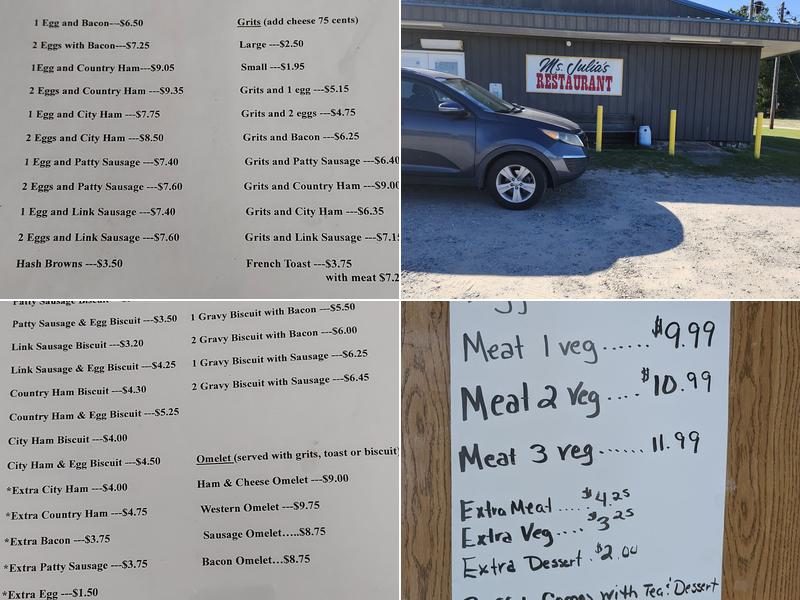 1 Egg and Bacon---$6.50
2 Eggs with Bacon---$7.25
1Egg and Country Ham---$9.05
2 Eggs and Country Ham---$9.35
1 Egg and City Ham ---$7.75
2 Eggs and City Ham ---$8.50
1 Egg and Patty Sausage ---$7.40
2 Eggs and Patty Sausage ---$7.60
1 Egg and Link Sausage ---$7.40
2 Eggs and Link Sausage ---$7.60
Hash Browns ---$3.50
Grits (add cheese 75 cents)
Large ---$2.50
Small ---$1.95
Grits and 1 egg ---$5.15
Grits and 2 eggs ---$4.75
Grits and Bacon ---$6.25
Grits and Patty Sausage ---$6.40
Grits and Country Ham ---$9.00
Grits and City Ham ---$6.35
Grits and Link Sausage ---$7.15
French Toast ---$3.75
with meat $7.2
Ms. Julia's
RESTAURANT
Patty Sausage Biscuit
Patty Sausage & Egg Biscuit ---$3.50
Link Sausage Biscuit ---$3.20
Link Sausage & Egg Biscuit ---$4.25
Country Ham Biscuit ---$4.30
Country Ham & Egg Biscuit ---$5.25
City Ham Biscuit ---$4.00
City Ham & Egg Biscuit ---$4.50
*Extra City Ham ---$4.00
*Extra Country Ham ---$4.75
*Extra Bacon ---$3.75
*Extra Patty Sausage ---$3.75
*Extra Egg ---$1.50
1 Gravy Biscuit with Bacon ---$5.50
2 Gravy Biscuit with Bacon ---$6.00
1 Gravy Biscuit with Sausage ---$6.25
2 Gravy Biscuit with Sausage ---$6.45
Omelet (served with grits, toast or biscuit)
Ham & Cheese Omelet ---$9.00
Western Omelet ---$9.75
Sausage Omelet…..$8.75
Bacon Omelet…$8.75
Meat 1 veg ...... $9.99
Meat 2 Veg .... $10.99
Meat 3 veg ...... 11.99
Extra Meat ..... $4.25
Extra Veg .... $3.25
Extra Dessert .. $2.00
Comes with Tea & Dessert